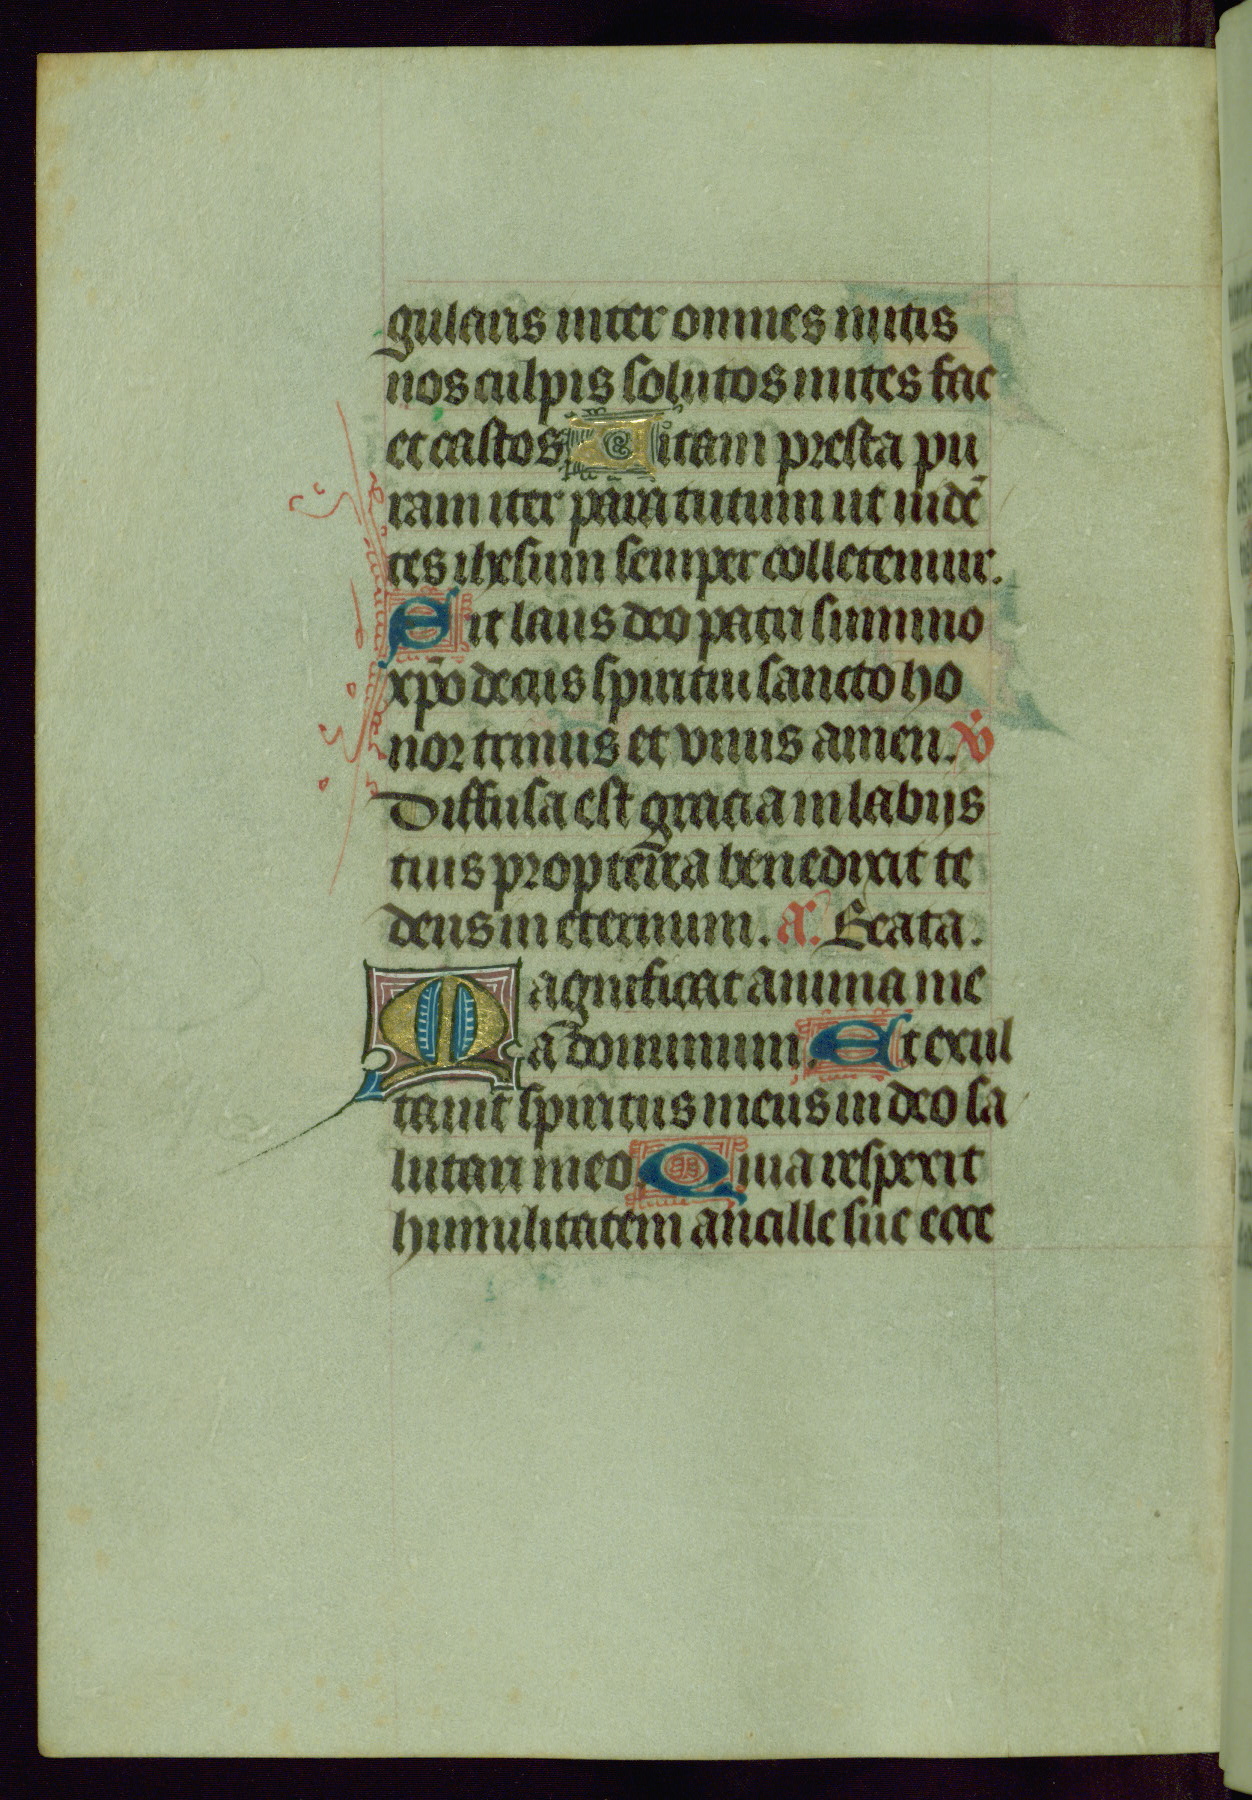 gularis inter omnes mitis
nos culpis solutos mites fac
et castos Vitam presta pu
ram iter para tutum ut uidẽ
tes ihesum semper colletemur.
Sit laus deo patri summo
xp̃o decus spiritui sancto ho
nor trinus et vnus amen. v̾
Diffusa est gracia in labijs
tuis propterea benedixit te
deus in eternum. a᷒. Beata.
Magnificat anima me
a dominum. Et exul
tauit spiritus meus in deo sa
lutari meo. Quia respexit
humilitatem ancille sue ecce